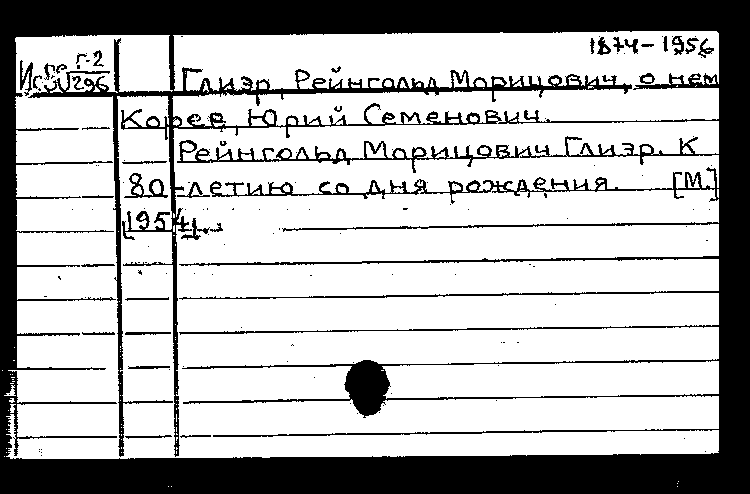 1874-1956
г-2
296
Глиэр, Рейнгольд Морицович, о нем
Корев, Юрий Семенович.
Рейнгольд Морицович Глиэр. К
80-летию со дня рождения. [М.]
1954.